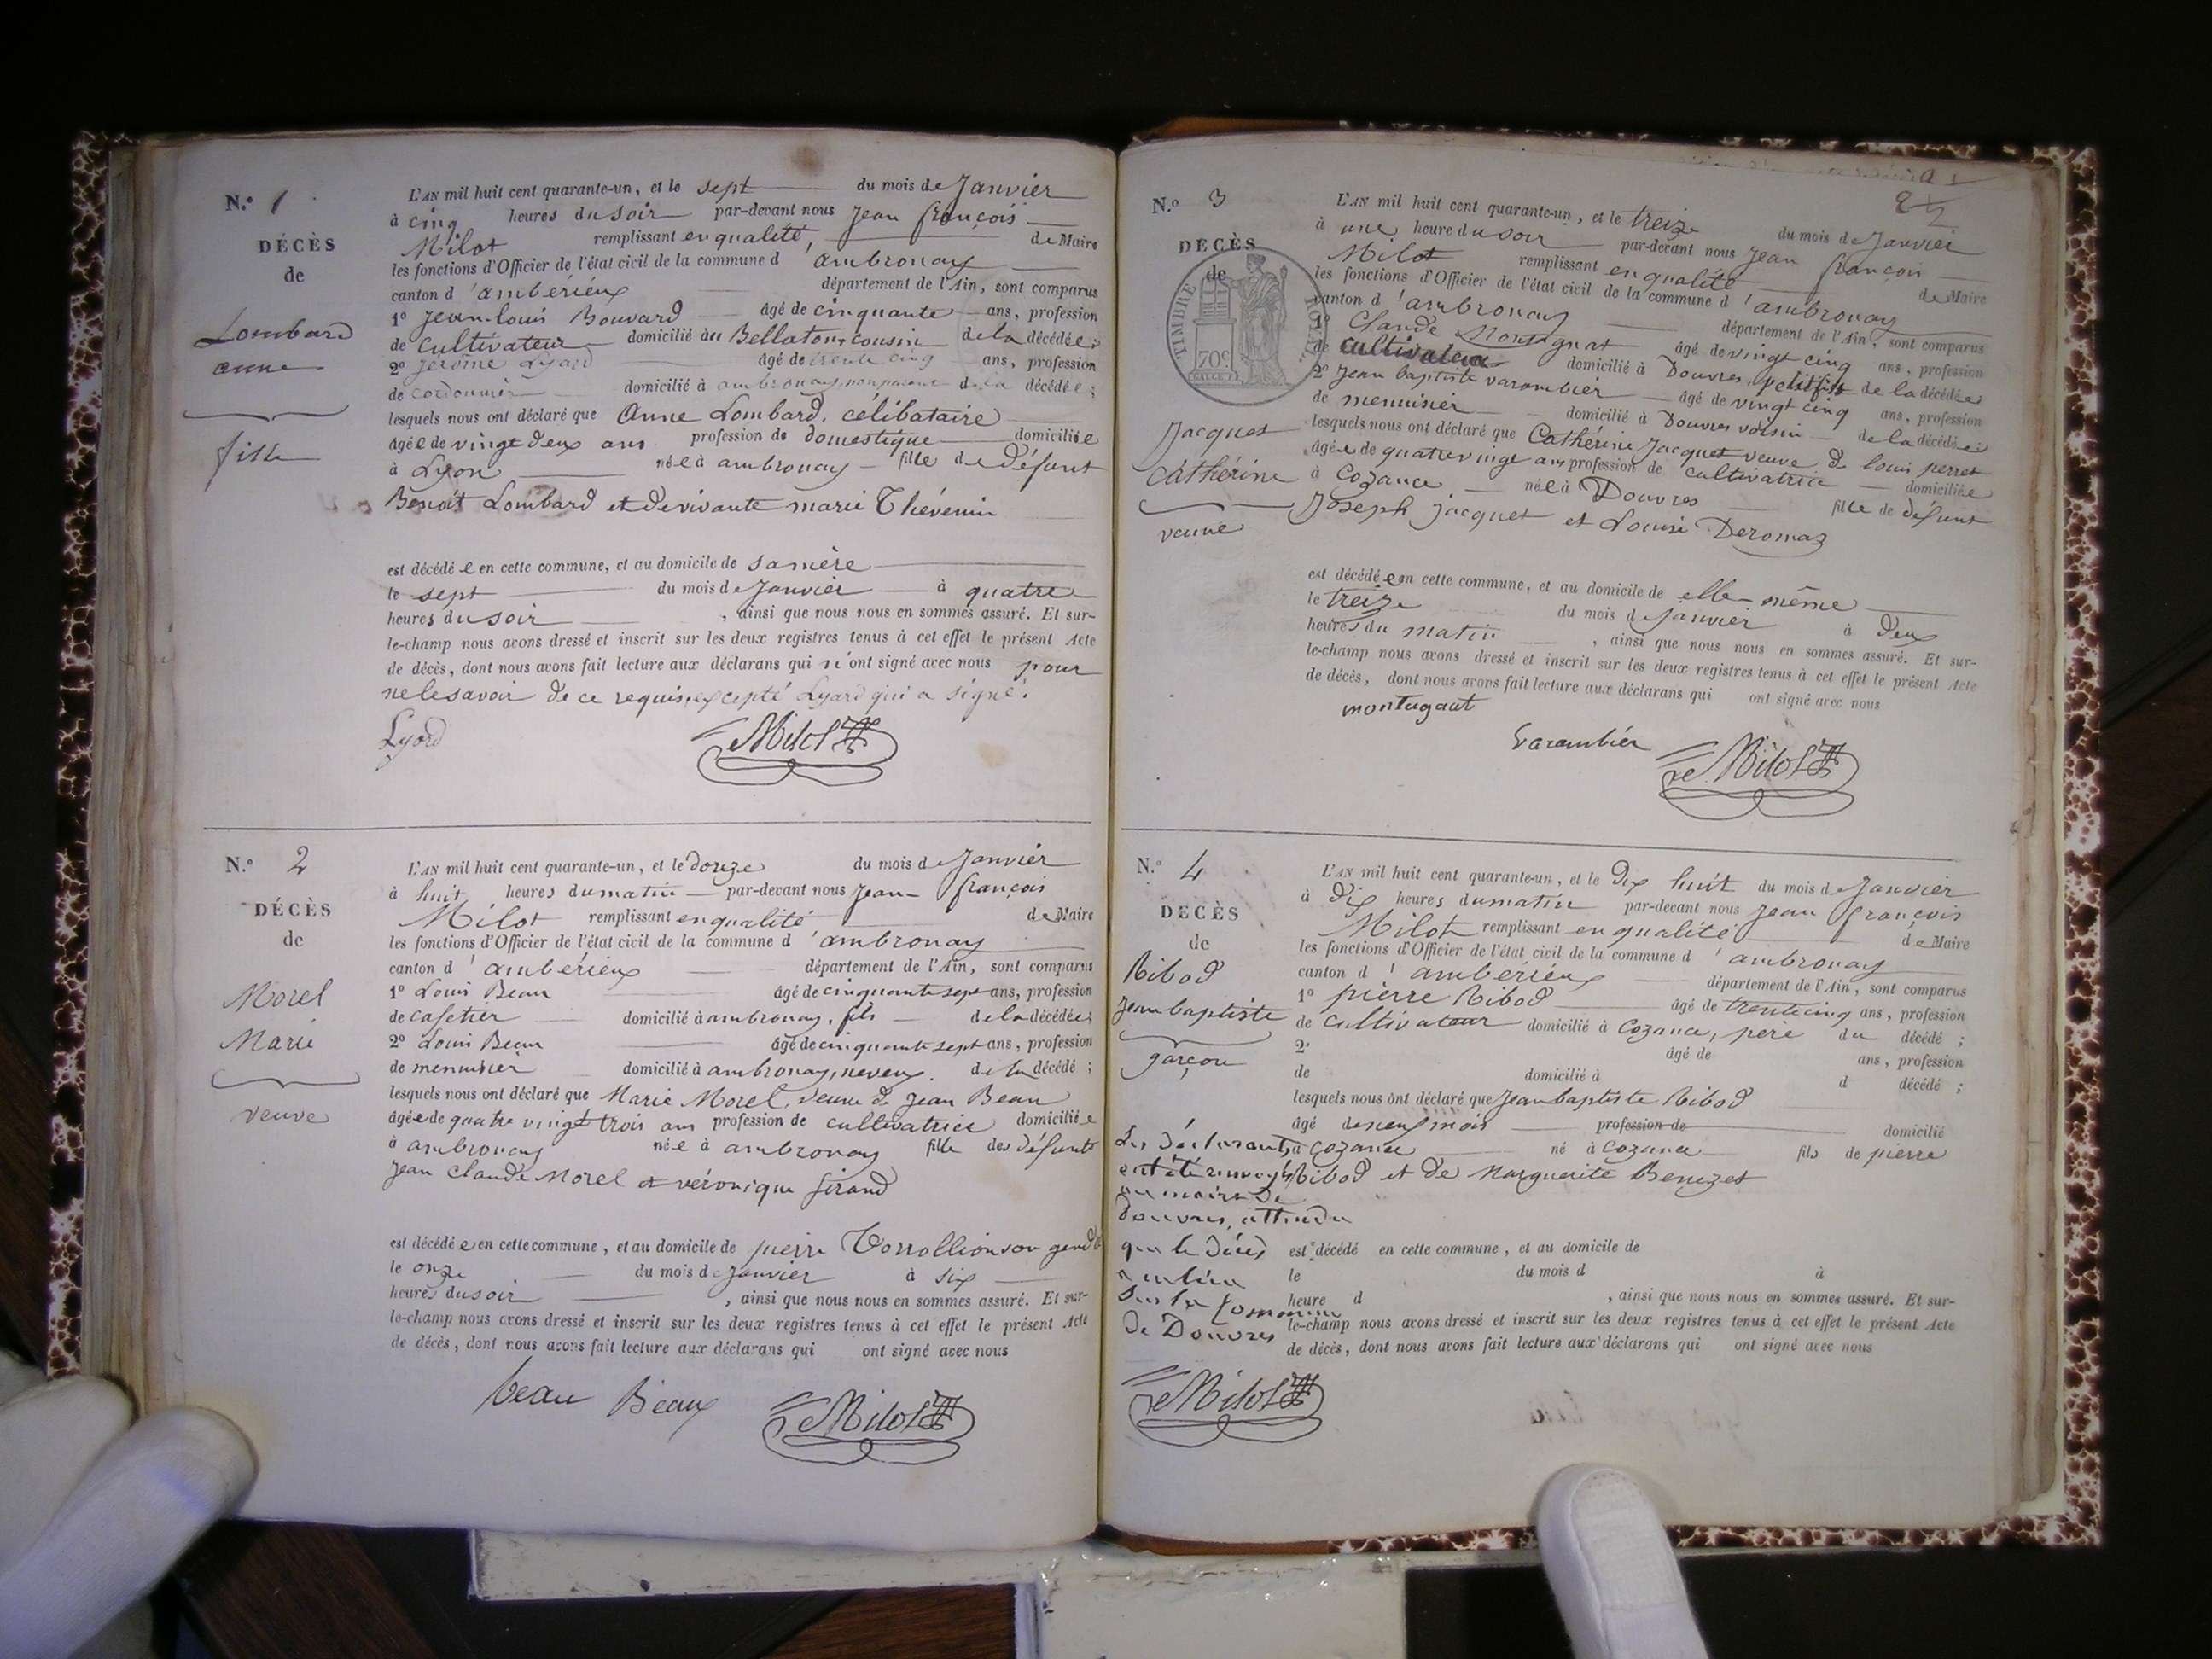 N.º 1
DÉCÈS
de
Lombard
anne
fille
L'AN mil huit cent quarante-un, et le sept du mois de Janvier
à cinq heures du soir par-devant nous Jean françois
Milot remplissant en qualité, de Maire
les fonctions d'Officier de l'état civil de la commune d'ambronay
canton d'ambérieux département de l'Ain, sont comparus
1º Jean-louis Bouvard âgé de cinquante ans, profession
de cultivateur domicilié à cousin de la décédée;
2º jérôme Lyard âgé de trente cinq ans, profession
de cordonnier domicilié à ambronay, non parent de la décédée;
lesquels nous ont déclaré que Anne Lombard, célibataire
âgée de vingt deux ans profession de domestique domiciliée
à Lyon née à ambronay fille de défunt
Benoit Lombard et de vivante marie Thévenin
est décédée en cette commune, et au domicile de sa mère
le sept du mois de Janvier à quatre
heures du soir, ainsi que nous nous en sommes assuré. Et sur-
le-champ nous avons dressé et inscrit sur les deux registres tenus à cet effet le présent Acte
de décès, dont nous avons fait lecture aux déclarans qui n'ont signé avec nous pour
ne le savoir de ce requis, excepté Lyard qui a signé.
Lyard Milot
N.º 2
DÉCÈS
de
Morel
Marie
veuve
L'AN mil huit cent quarante-un, et le douze du mois de Janvier
à huit heures du matin par-devant nous Jean françois
Milot remplissant en qualité de Maire
les fonctions d'Officier de l'état civil de la commune d'ambronay
canton d'ambérieux département de l'Ain, sont comparus
1º Louis Beau âgé de cinquante sept ans, profession
de cafetier domicilié à ambronay, fils de la décédée;
2º Louis Beau âgé de cinquante sept ans, profession
de menuisier domicilié à ambronay, neveux. de la décédé;
lesquels nous ont déclaré que Marie Morel, veuve de Jean Beau
âgée de quatre vingt trois ans profession de cultivatrice domiciliée
à ambronay née à ambronay fille des défunts
Jean Claude Morel et véronique girand
est décédée en cette commune, et au domicile de pierre son gendre
le onze du mois de Janvier à six
heures du soir, ainsi que nous nous en sommes assuré. Et sur-
le-champ nous avons dressé et inscrit sur les deux registres tenus à cet effet le présent Acte
de décès, dont nous avons fait lecture aux déclarans qui ont signé avec nous
beau Beaux Milot
N.º 3
DÉCÈS
de
TIMBRE ROYAL
70c
Jacquet
Cathérine
veuve
L'AN mil huit cent quarante-un, et le treize du mois de Janvier
à une heure du soir par-devant nous Jean françois
Milot remplissant en qualité de Maire
les fonctions d'Officier de l'état civil de la commune d'ambronay
canton d'ambronay département de l'Ain, sont comparus
1º Claude Montagnat âgé de vingt cinq ans, profession
de cultivateur domicilié à Douvres, petit fils de la décédée
2º Jean baptiste varambier âgé de vingt cinq ans, profession
de menuisier domicilié à Douvres voisin de la décédée
lesquels nous ont déclaré que Cathérine Jacquet veuve de louis perret
âgée de quatre vingt ans profession de cultivatrice domiciliée
à Cozance née à Douvres fille de défunt
Joseph jacquet et Louise Deromaz
est décédée en cette commune, et au domicile de elle-même
le treize du mois de Janvier à Deux
heures du matin, ainsi que nous nous en sommes assuré. Et sur-
le-champ nous avons dressé et inscrit sur les deux registres tenus à cet effet le présent Acte
de décès, dont nous avons fait lecture aux déclarans qui ont signé avec nous
montagnat
Varambier Milot
N.º 4
DÉCÈS
de
Ribod
Jean baptiste
garçon
L'AN mil huit cent quarante-un, et le Dix huit du mois de Janvier
à Dix heures du matin par-devant nous Jean françois
Milot remplissant en qualité de Maire
les fonctions d'Officier de l'état civil de la commune d'ambronay
canton d'ambérieux département de l'Ain, sont comparus
1º pierre Ribod âgé de trente cinq ans, profession
de cultivateur domicilié à Cozance, père du décédé;
2º âgé de ans, profession
de domicilié à d décédé;
lesquels nous ont déclaré que Jean baptiste Ribod
âgé de neuf mois profession de domicilié
à Cozance né à Cozance fils de pierre
Ribod et de Marguerite Benezet
est décédé en cette commune, et au domicile de
le du mois d à
heure d, ainsi que nous nous en sommes assuré. Et sur-
le-champ nous avons dressé et inscrit sur les deux registres tenus à cet effet le présent Acte
de décès, dont nous avons fait lecture aux déclarans qui ont signé avec nous
Les déclarants
ont été renvoyés
au maire de
Douvres, attendu
que le décès
a eu lieu
sur la Commune
de Douvres
Milot